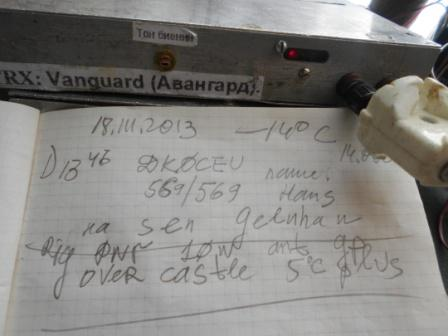 Тон биений
TRX: Vanguard (Авангард).
18.III.2013 –14°C
D 13 46 DKØCEU 14.0
569/569 name: Hans
na sen Gelnhau
Rig 10W ant gp
over castle 5°C plus